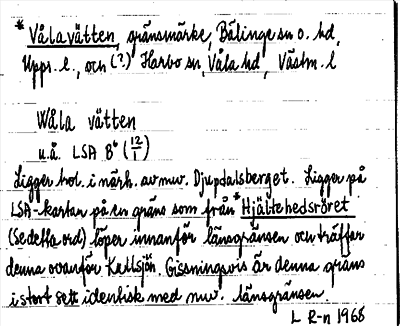 * Vålavätten, gränsmärke, Bälinge sn o. hd,
Upps. l., och (?) Harbo sn, Våla hd, Västm. l
Wåla vätten
u.å. LSA B⁶ (12/1)
Ligger trol. i närh. av nuv. Djupdalsberget. Ligger på
LSA-kartan på en gräns som från * Hjältehedsröret
(se detta ord) löper innanför länsgränsen och träffar
denna ovanför Kallsjön. Gissningsvis är denna gräns
i stort sett identisk med nuv. länsgränsen.
L R-n 1968